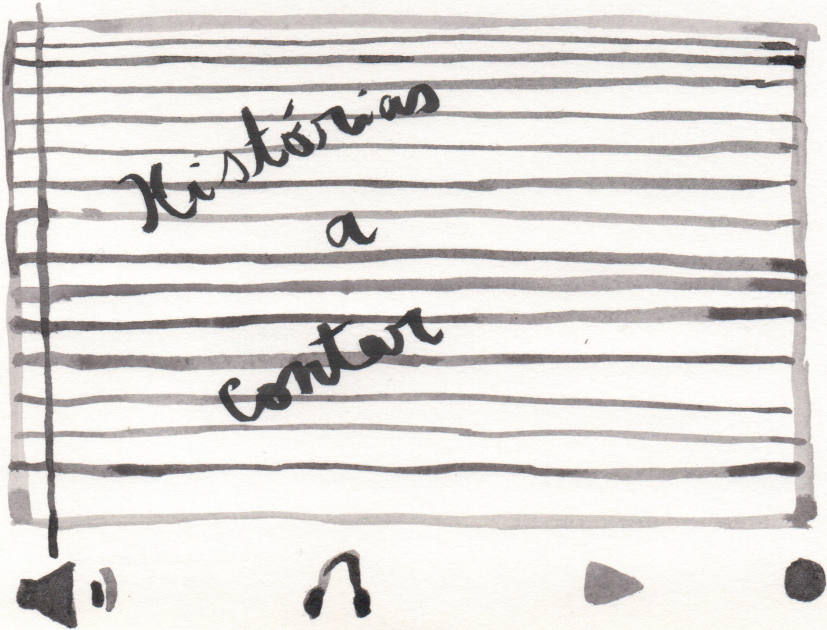 Histórias
a
contar